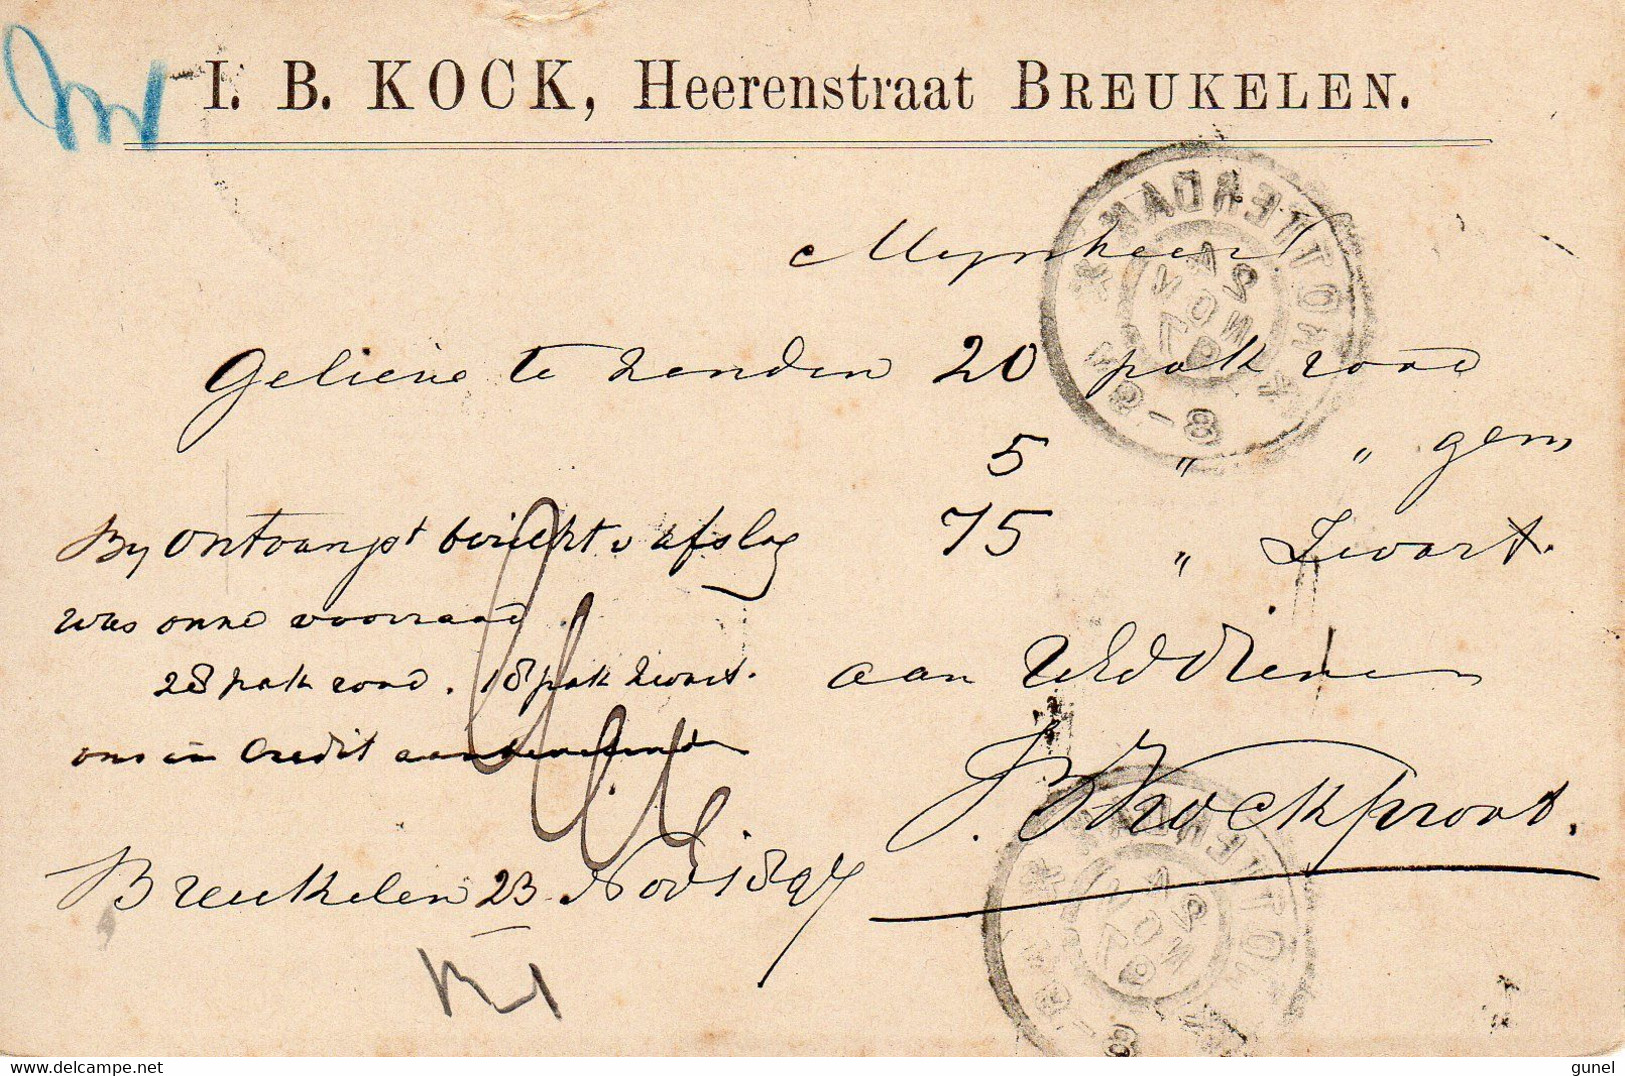 I. B. KOCK, Heerenstraat BREUKELEN.
Mynheer!
Gelieve te zenden 20 pak rood
5 " " gem,
75 " Zwart.
By ontvangst bericht v afslag
was onne voorraad.
28 pak rood. 18 pak zwart.
ons in Credit
aan UEd Dienen
J B Kock
Breukelen 23 Nov 1897
ROTTERDAM
24 NOV 97
8-9
ROTTERDAM
24 NOV 97
gunel
delcampe.net